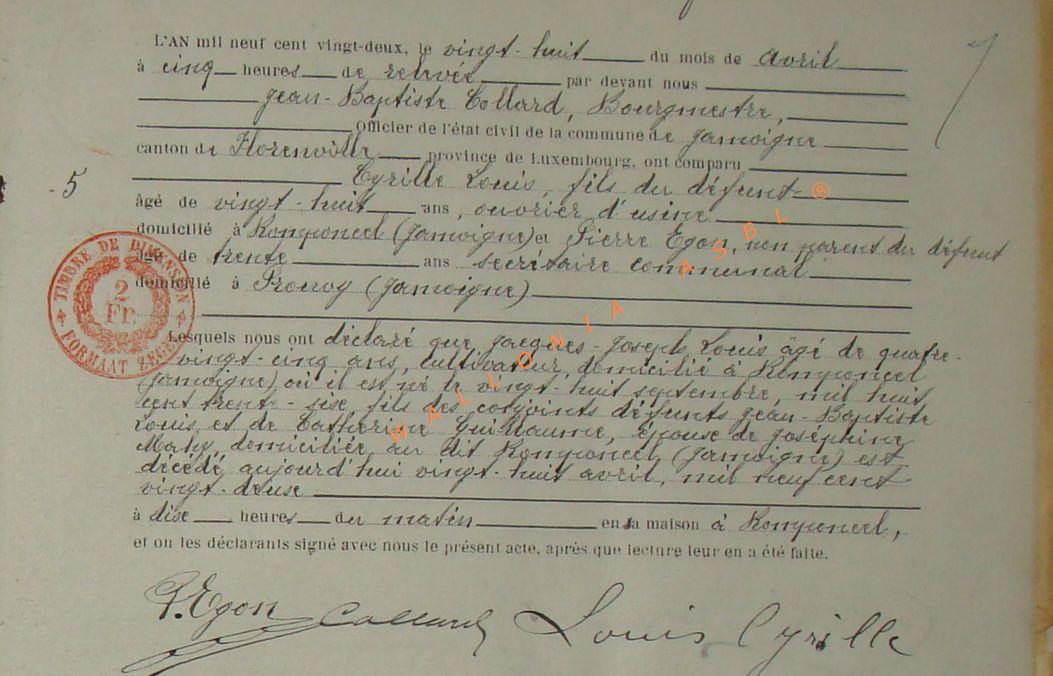 L'AN mil neuf cent vingt-deux, le vingt-huit du mois de avril
à cinq heures de relevée par devant nous
Jean-Baptiste Collard, Bourgmestre,
Officier de l'état civil de la commune de Jamoigne
canton de Florenville province de Luxembourg, ont comparu
5
Cyrille Louis, fils du défunt
âgé de vingt-huit ans, ouvrier d'usine
domicilié à Romponcel (Jamoigne) et Pierre Egon, non parent du défunt
âgé de trente ans secrétaire communal
domicilié à Prouvy (Jamoigne)
TIMBRE DE DIMENSION
2
Fr.
FORMAAT ZEGEL
Lesquels nous ont déclaré que Jacques-Joseph Louis âgé de quatre-
vingt-cinq ans, cultivateur, domicilié à Romponcel
(Jamoigne) où il est né le vingt-huit septembre, mil huit
cent trente-sise, fils des conjoints défunts Jean-Baptiste
Louis et de Catherine Guillaume, épouse de Joséphine
Mahy, domiciliée au dit Romponcel (Jamoigne) est
décédé aujourd'hui vingt-huit avril, mil neuf cent
vingt-deuse
à dise heures du matin en sa maison à Romponcel,
et ont les déclarants signé avec nous le présent acte, après que lecture leur en a été faite.
P. Egon Collard Louis Cyrille
WALLONIA ASBL ®